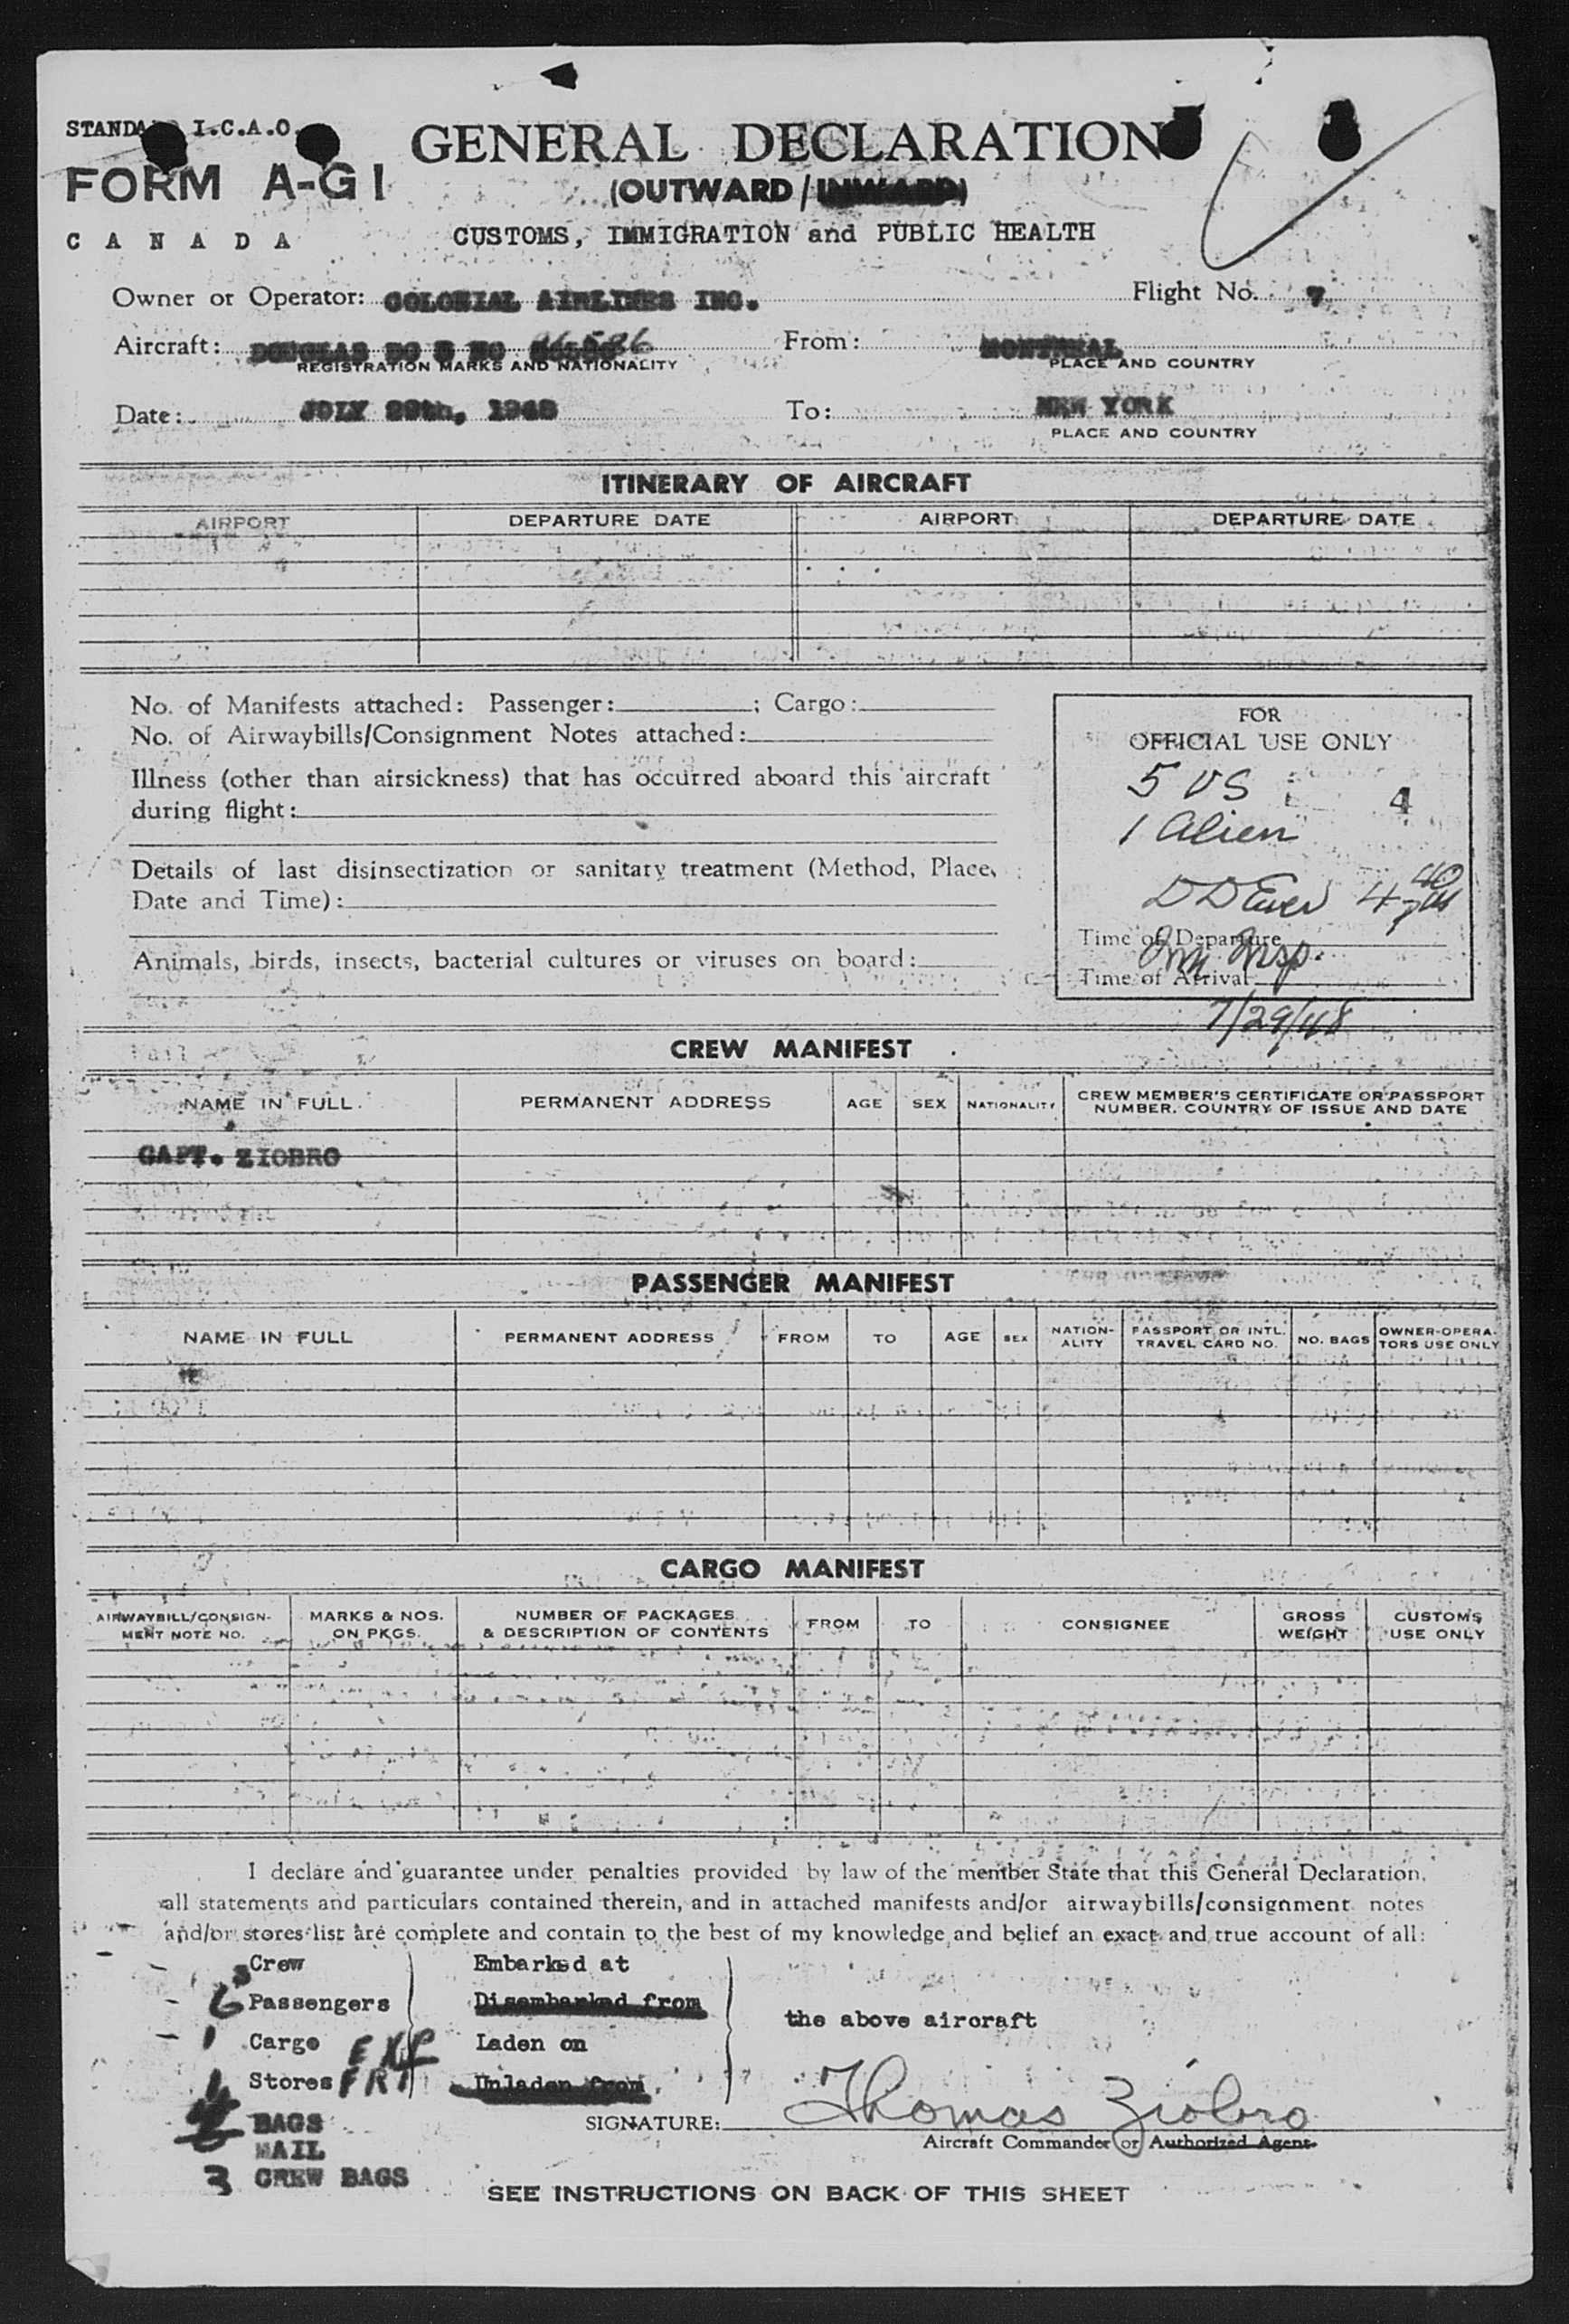 I.C.A.O.
FORM A-G1
CANADA
GENERAL DECLARATION
(OUTWARD/INWARD)
CUSTOMS, IMMIGRATION and PUBLIC HEALTH
Owner or Operator: COLONIAL AIRLINES INC. Flight No. 7
Aircraft: DOUGLAS DC From: MONTREAL
REGISTRATION MARKS AND NATIONALITY PLACE AND COUNTRY
Date: JULY 29th, 1948 To: NEW YORK
PLACE AND COUNTRY
ITINERARY OF AIRCRAFT
AIRPORT DEPARTURE DATE AIRPORT DEPARTURE DATE
No. of Manifests attached: Passenger: ; Cargo:
No. of Airwaybills/Consignment Notes attached:
Illness (other than airsickness) that has occurred aboard this aircraft
during flight:
Details of last disinsectization or sanitary treatment (Method, Place,
Date and Time):
Animals, birds, insects, bacterial cultures or viruses on board:
FOR
OFFICIAL USE ONLY
5 US 4
1 Alien
Time of Departure
Imm Insp.
Time of Arrival
7/29/48
CREW MANIFEST
NAME IN FULL PERMANENT ADDRESS AGE SEX NATIONALITY CREW MEMBER'S CERTIFICATE OR PASSPORT
NUMBER. COUNTRY OF ISSUE AND DATE
CAPT. ZIOBRO
PASSENGER MANIFEST
NAME IN FULL PERMANENT ADDRESS FROM TO AGE SEX NATION-
ALITY PASSPORT OR INTL.
TRAVEL CARD NO. NO. BAGS OWNER-OPERA-
TORS USE ONLY
CARGO MANIFEST
AIRWAYBILL/CONSIGN-
MENT NOTE NO. MARKS & NOS.
ON PKGS. NUMBER OF PACKAGES
& DESCRIPTION OF CONTENTS FROM TO CONSIGNEE GROSS
WEIGHT CUSTOMS
USE ONLY
I declare and guarantee under penalties provided by law of the member State that this General Declaration,
all statements and particulars contained therein, and in attached manifests and/or airwaybills/consignment notes
and/or stores list are complete and contain to the best of my knowledge and belief an exact and true account of all:
3 Crew Embarked at
6 Passengers Disembarked from
the above aircraft
1 Cargo EXP Laden on
Stores FRT Unladen from
BAGS
MAIL
3 CREW BAGS
SIGNATURE: Thomas Ziobro
Aircraft Commander or Authorized Agent
SEE INSTRUCTIONS ON BACK OF THIS SHEET